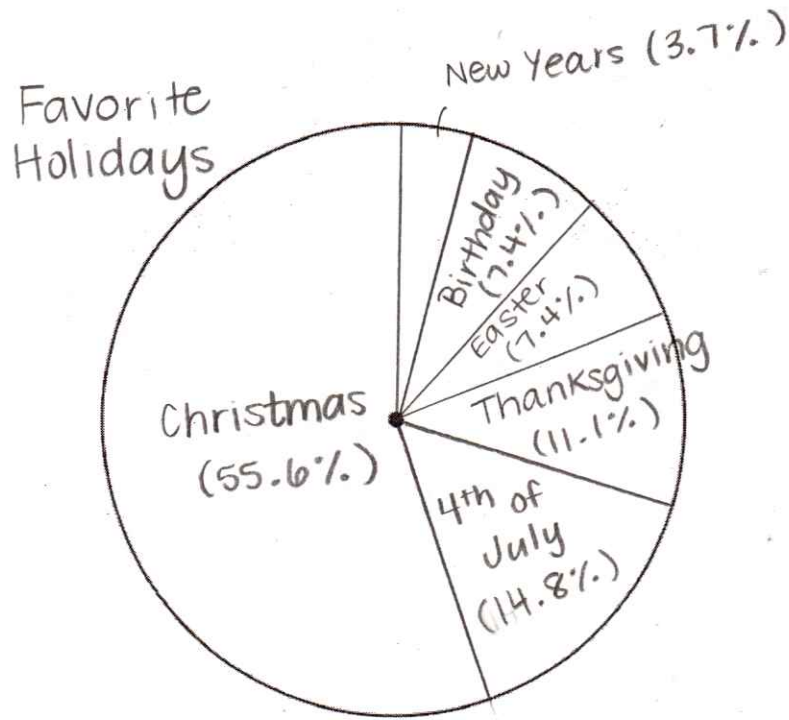 Favorite
Holidays
New Years (3.7%)
Birthday
(7.4%)
Easter
(7.4%)
Thanksgiving
(11.1%)
4th of
July
(14.8%)
Christmas
(55.6%)